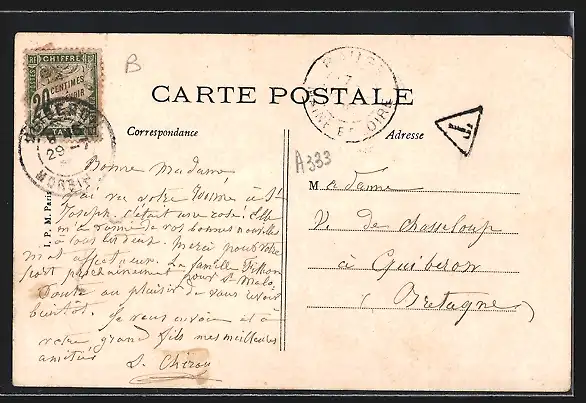 B
CHIFFRE
CENTIMES
CARTE POSTALE
Correspondance
Adresse
T
A333
MORBI
29
I. P. M. Paris
Bonne Madame
J'ai vu votre à St
Joseph, c'était une rose. Elle
m'a de vos bonnes nouvelles
à tous les deux. Merci pour votre
mot affectueux. La famille
part prochainement pour St Malo.
au plaisir de vous revoir
bientôt. Je vous envoie et à
votre grand fils mes meilleures
amitiés
Madame
V. de Chasseloup
à Quiberon
(Bretagne)